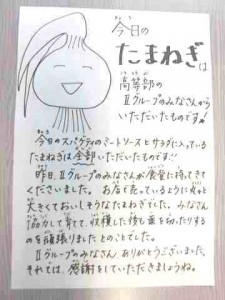 今日の
たまねぎは
高等部の
Ⅱグループのみなさんから
いただいたものです!
今日のスパゲティのミートソースとサラダに入っている
たまねぎは全部いただいたものです!!
昨日、Ⅱグループのみなさんが食堂に持ってきて
くださいました。お店で売っているように丸々と
大きくておいしそうなたまねぎでした。みなさん
協力して育てて、収穫した後も茎を切ったりする
のを頑張りましたとのことでした。
Ⅱグループのみなさん、ありがとうございました。
それでは、感謝をしていただきましょうね。